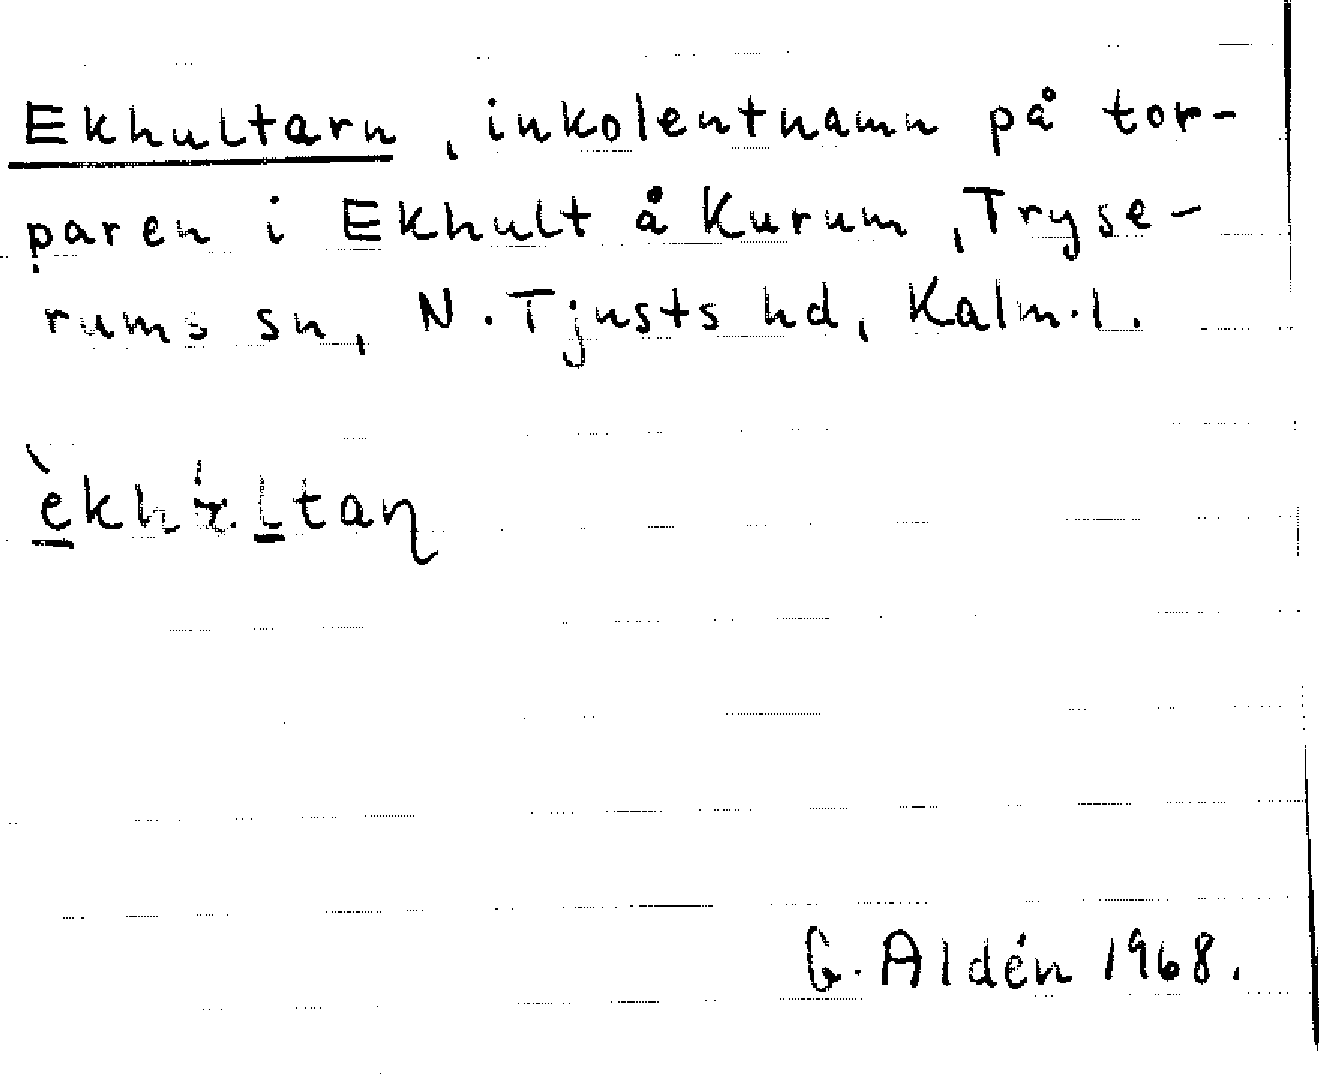 Ekhultarn, inkolentnamn på tor-
paren i Ekhult å Kurum, Tryse-
rums sn, N. Tjusts hd, Kalm. l.
G. Aldén 1968.